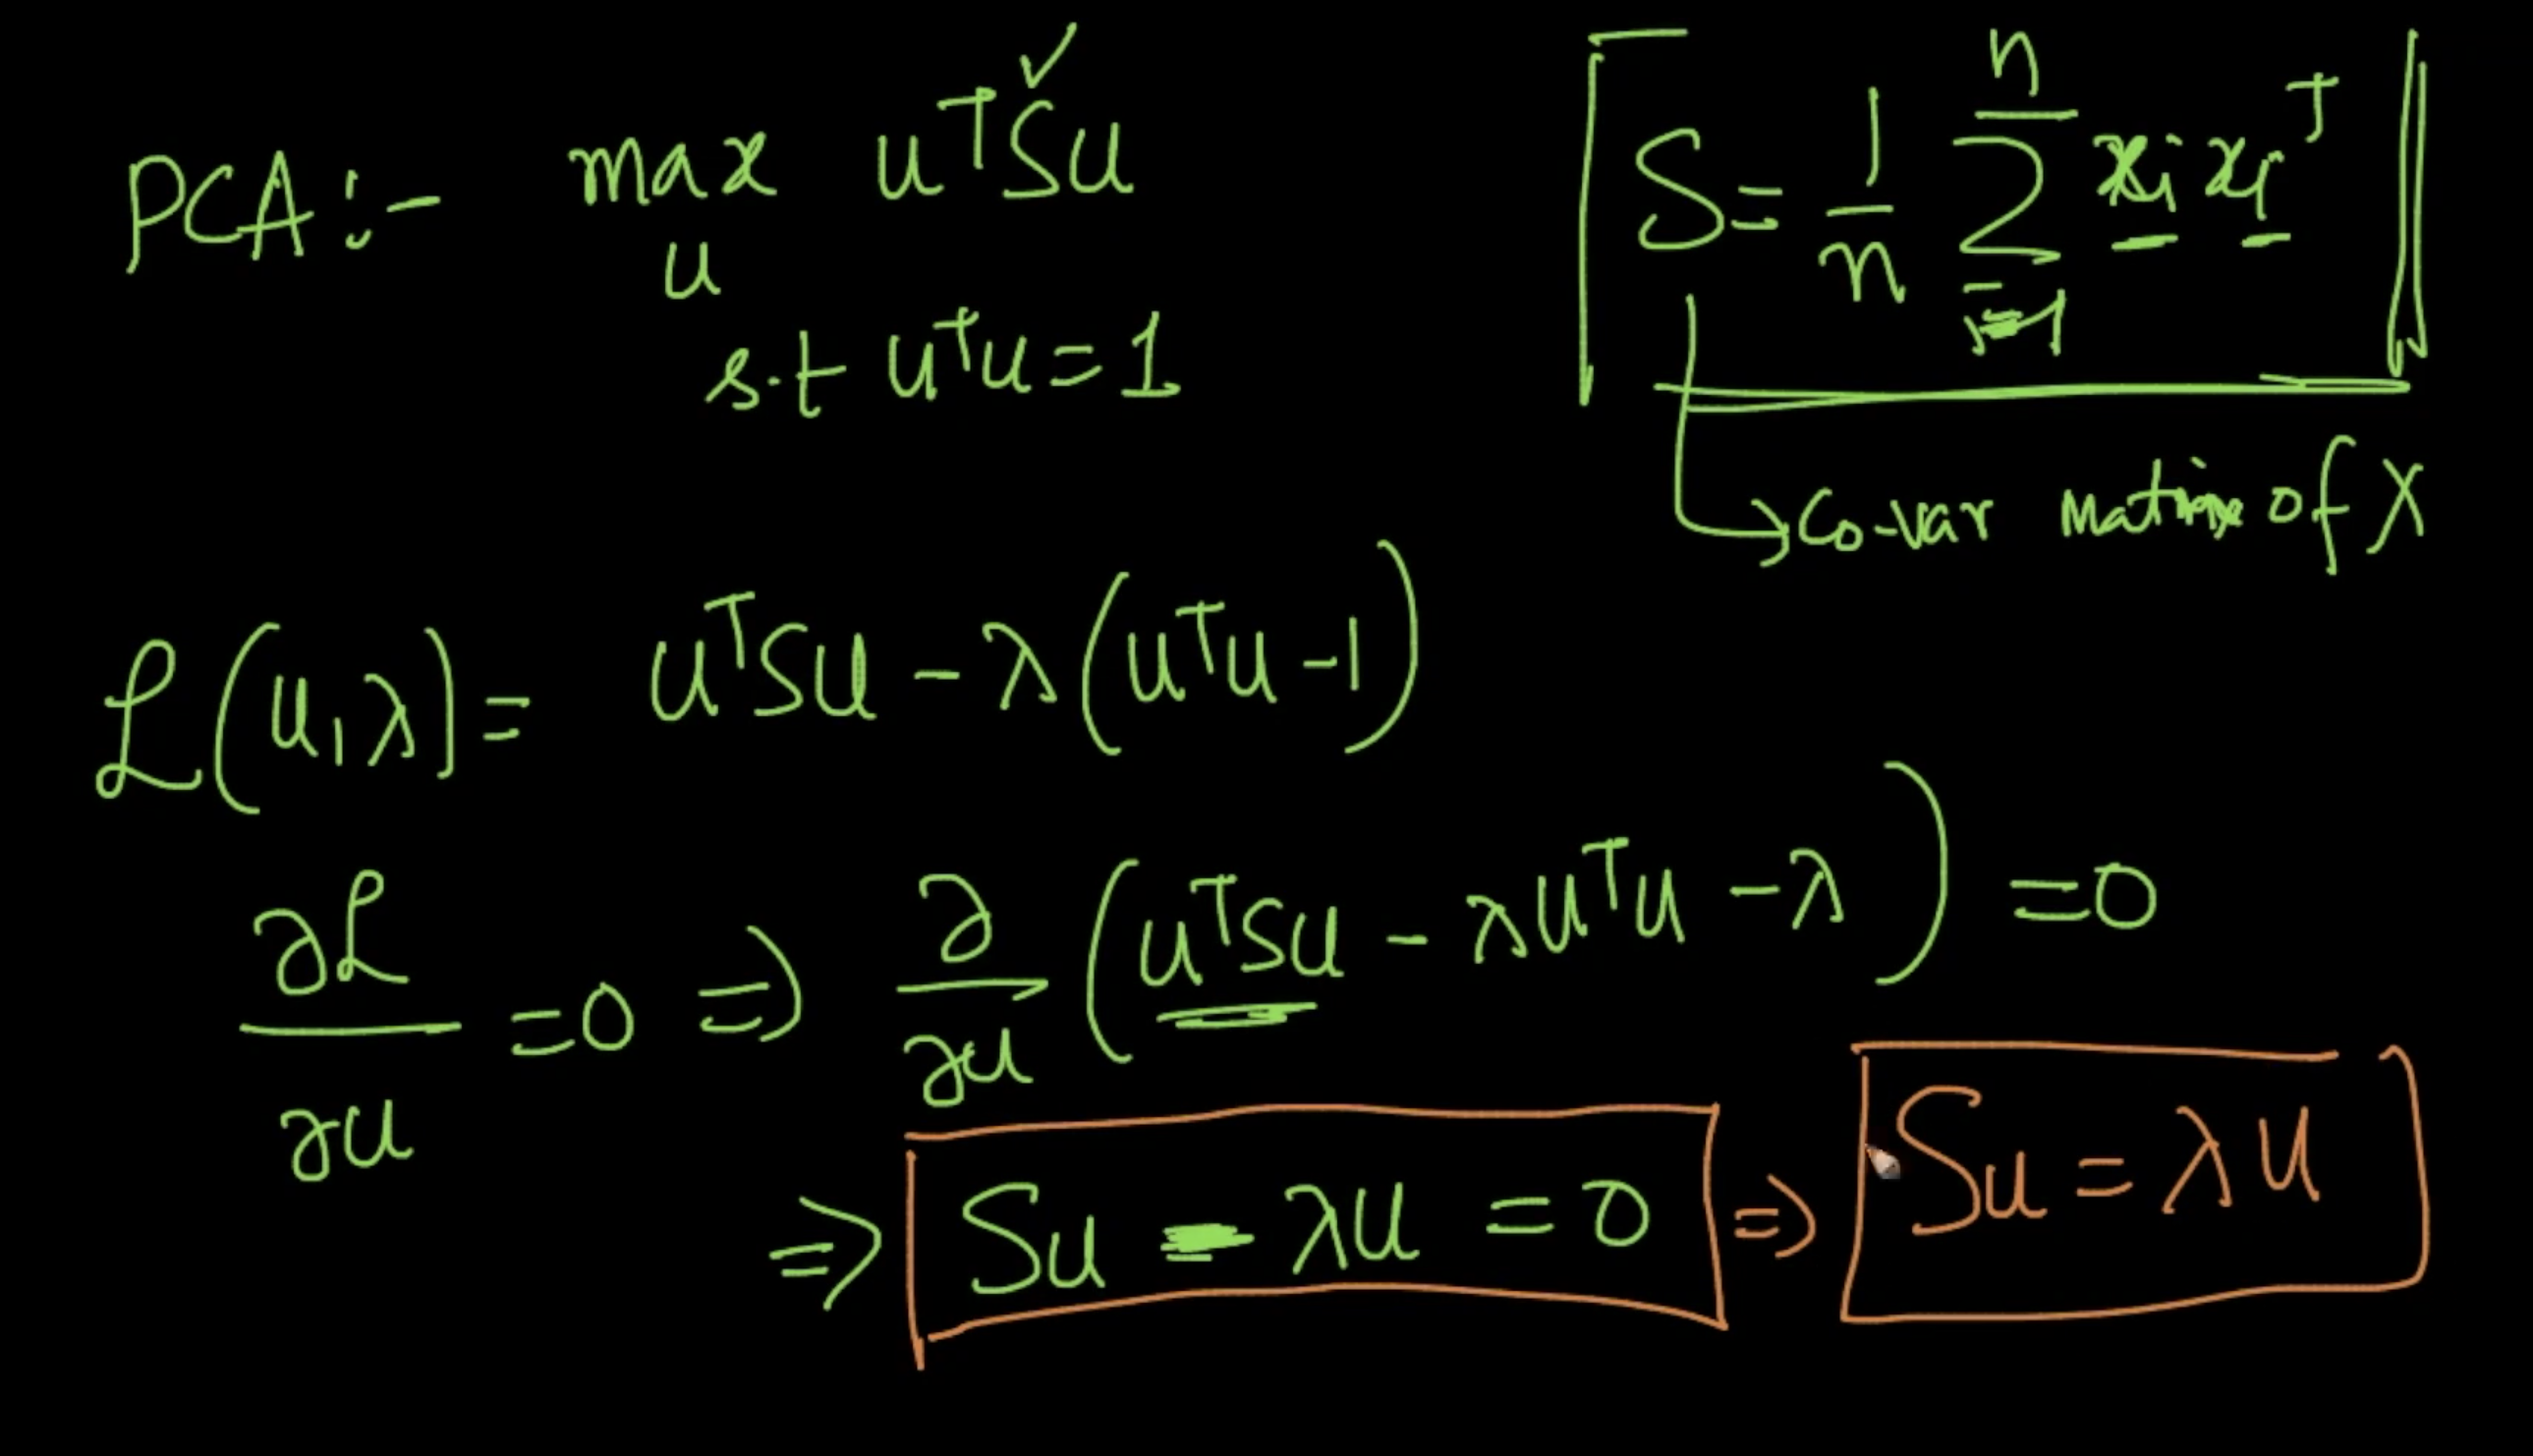 PCA :- max u^T S u
u
s.t u^T u = 1
S = 1/n ∑_{i=1}^{n} x_i x_i^T
→ Co-var matrix of X
ℒ(u, λ) = u^T S u - λ(u^T u - 1)
∂ℒ/∂u = 0 ⇒ ∂/∂u (u^T S u - λ u^T u - λ) = 0
⇒ Su - λu = 0 ⇒ Su = λu